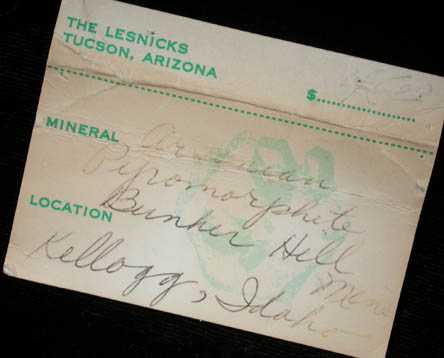 THE LESNICKS
TUCSON, ARIZONA
$....................
MINERAL arsenian
Pyromorphite
LOCATION Bunker Hill
Mine
Kellogg, Idaho